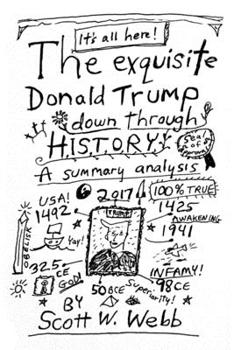 It's all here!
The exquisite
Donald Trump
down through
HISTORY!
seal of
A summary analysis
2017
100% TRUE
USA!
1492
1425
AWAKENING
1941
TRUMP
Yay!
OBELISK
32.5
CE
GOD!
50 BCE
Superiority!
INFAMY!
98 CE
BY
Scott W. Webb